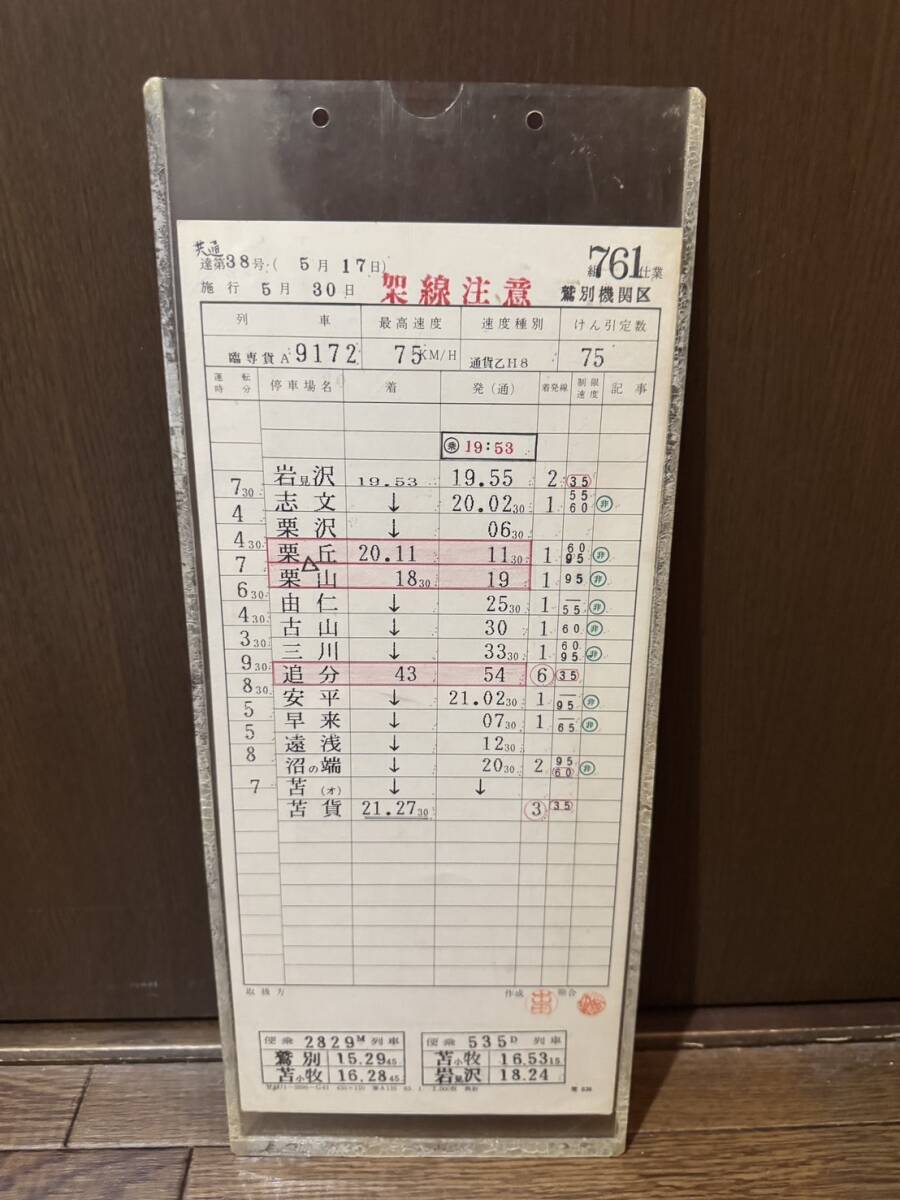 共通
達第38号(5月17日)
組761仕業
施行 5月30日
架線注意
鷲別機関区
列車 最高速度 速度種別 けん引定数
臨専貨A9172 75KM/H 通貨乙H8 75
運転時分 停車場名 着 発(通) 着発線 制限速度 記事
乗 19:53
岩見沢 19.53 19.55 2 35
7 30
志文 ↓ 20.02 30 1 55 60 非
4
栗沢 ↓ 06 30
4 30
栗丘 20.11 11 30 1 60 95 非
7 △
栗山 18 30 19 1 95 非
6 30
由仁 ↓ 25 30 1 — 55 非
4 30
古山 ↓ 30 1 60 非
3 30
三川 ↓ 33 30 1 60 95 非
9 30
追分 43 54 6 35
8 30
安平 ↓ 21.02 30 1 — 95 非
5
早来 ↓ 07 30 1 — 65 非
5
遠浅 ↓ 12 30
8
沼の端 ↓ 20 30 2 95 60 非
7
苫(オ) ↓ ↓
苫貨 21.27 30 3 35
取扱方
作成 照合
便乗 2829M 列車
鷲別 15.29 45
苫小牧 16.28 45
便乗 535D 列車
苫小牧 16.53 15
岩見沢 18.24